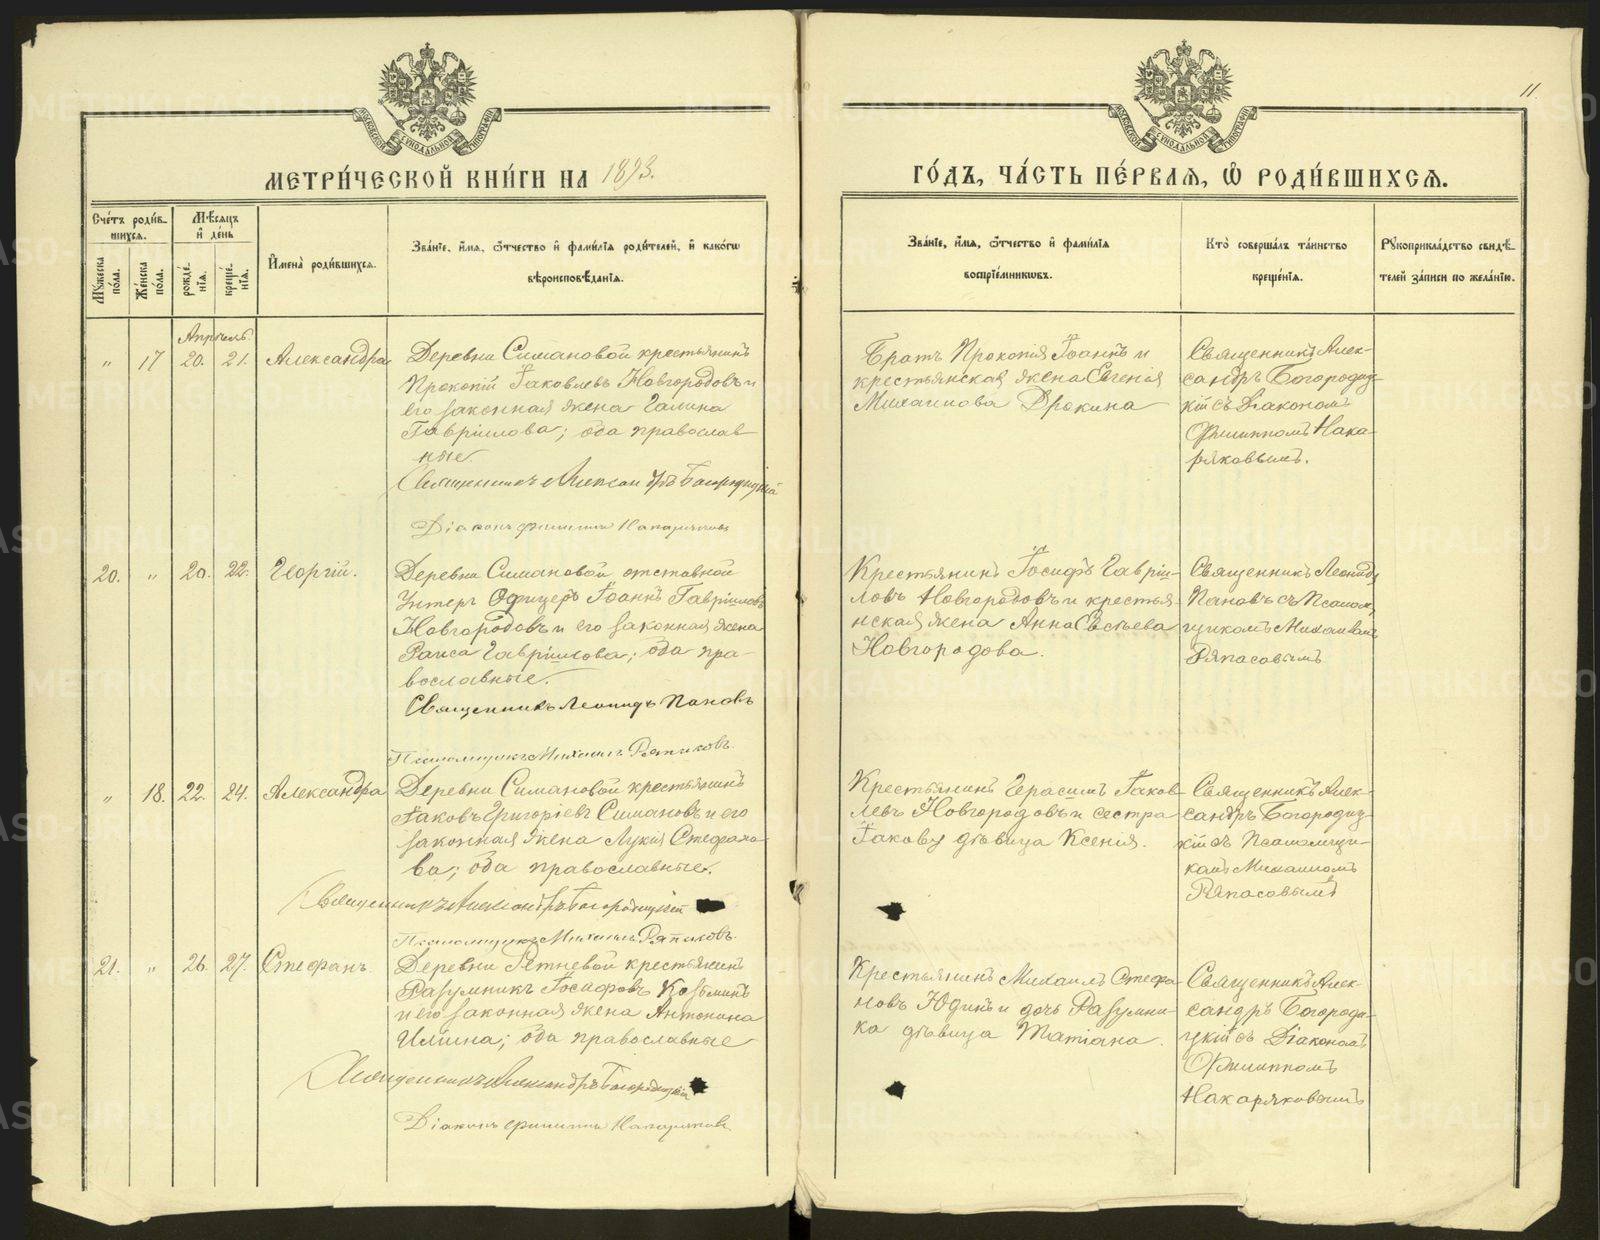 11
МЕТРИ́ЧЕСКОЙ КНИ́ГИ НА 1893.
ГО́ДЪ, ЧА́СТЬ ПЕ́РВАЯ, Ѡ РОДИ́ВШИХСЯ.
Счетъ родившихся.
Мужеска пола.
Женска пола.
Мѣсяцъ и день
рожденія.
крещенія.
Имена родившихся.
Званіе, имя, отчество и фамилія родителей, и какого
вѣроисповѣданія.
Званіе, имя, отчество и фамилія
воспріемниковъ.
Кто совершалъ таинство
крещенія.
Рукоприкладство свидѣ-
телей записи по желанію.
Апрѣль
" 17 20. 21. Александра
Деревни Симановой крестьянинъ
Прокопій Іаковлевъ Новгородовъ и
его законная жена Галина
Гавріилова; оба православ-
ные.
Священникъ Александръ Богородицкій
Діаконъ Филиппъ Накаряковъ
Братъ Прокопія Іоаннъ и
крестьянская жена Евгенія
Михаилова Дрокина
Священникъ Алек-
сандръ Богородиц-
кій съ Діакономъ
Филиппомъ Нака-
ряковымъ.
20. " 20. 22. Георгій.
Деревни Симановой отставной
Унтеръ Офицеръ Іоаннъ Гавріиловъ
Новгородовъ и его законная жена
Раиса Гавріилова; оба пра-
вославные.
Священникъ Леонидъ Пановъ
Псаломщикъ Михаилъ Ряпасовъ.
Крестьянинъ Іосифъ Гавріи-
ловъ Новгородовъ и крестья-
нская жена Анна Евсѣева
Новгородова.
Священникъ Леонидъ
Пановъ съ Псалом-
щикомъ Михаиломъ
Ряпасовымъ
" 18. 22. 24. Александра
Деревни Симановой крестьянинъ
Іаковъ Григоріевъ Симановъ и его
законная жена Лукія Стефано-
ва; оба православные.
Священникъ Александръ Богородицкій
Псаломщикъ Михаилъ Ряпасовъ.
Крестьянинъ Герасимъ Іаков-
левъ Новгородовъ и сестра
Іакову дѣвица Ксенія.
Священникъ Алек-
сандръ Богородиц-
кій съ Псаломщи-
комъ Михаиломъ
Ряпасовымъ
21. " 26. 27. Стефанъ.
Деревни Ретневой крестьянинъ
Разумникъ Іосифовъ Козьминъ
и его законная жена Антонина
Илiина; оба православные
Священникъ Александръ Богородицкій
Діаконъ Филиппъ Накаряковъ
Крестьянинъ Михаилъ Стефа-
новъ Юдинъ и дочь Разумни-
ка дѣвица Татіана.
Священникъ Алек-
сандръ Богороди-
цкій съ Діакономъ
Филиппомъ
Накаряковымъ